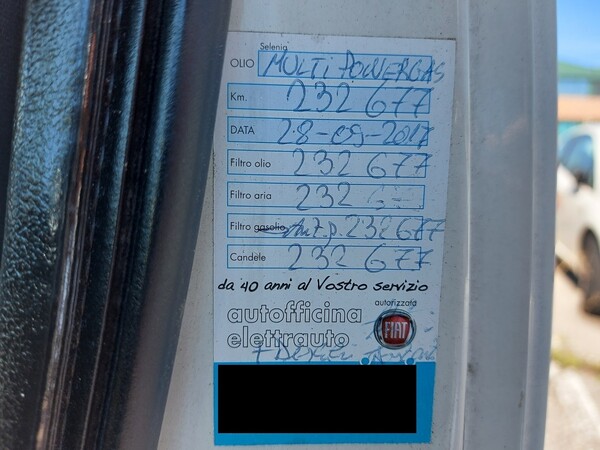 Selenia
OLIO MULTI POWERGAS
Km. 232 677
DATA 28-09-2017
Filtro olio 232 677
Filtro aria 232 677
Filtro gasolio Ant.p. 232677
Candele 232 677
da 40 anni al Vostro servizio
autofficina autorizzata
elettrauto FIAT
+